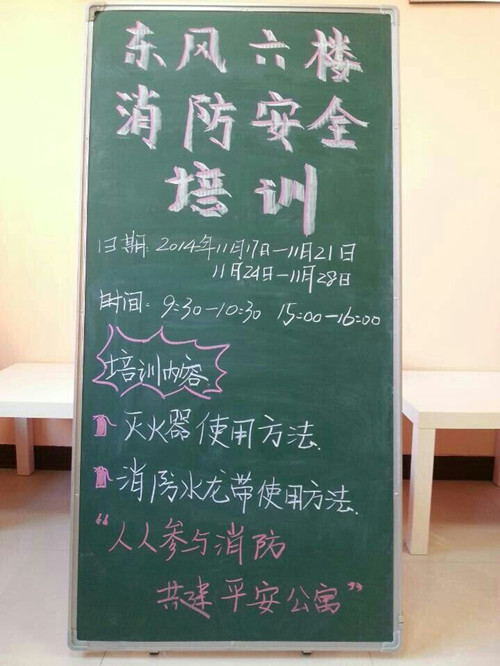 东风六楼
消防安全
培训
日期:2014年11月17日—11月21日
11月24日—11月28日
时间:9:30—10:30 15:00—16:00
培训内容
灭火器使用方法.
消防水龙带使用方法.
“人人参与消防
共建平安公寓”